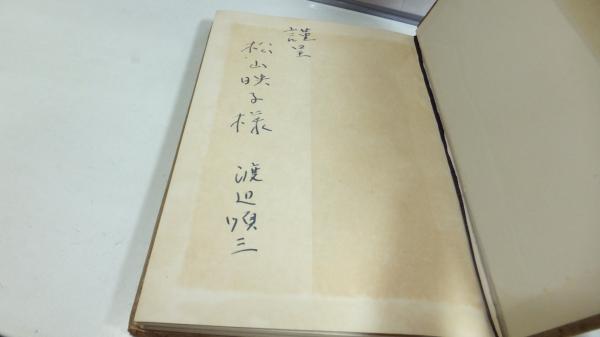 謹呈
松山映子様
渡辺順三